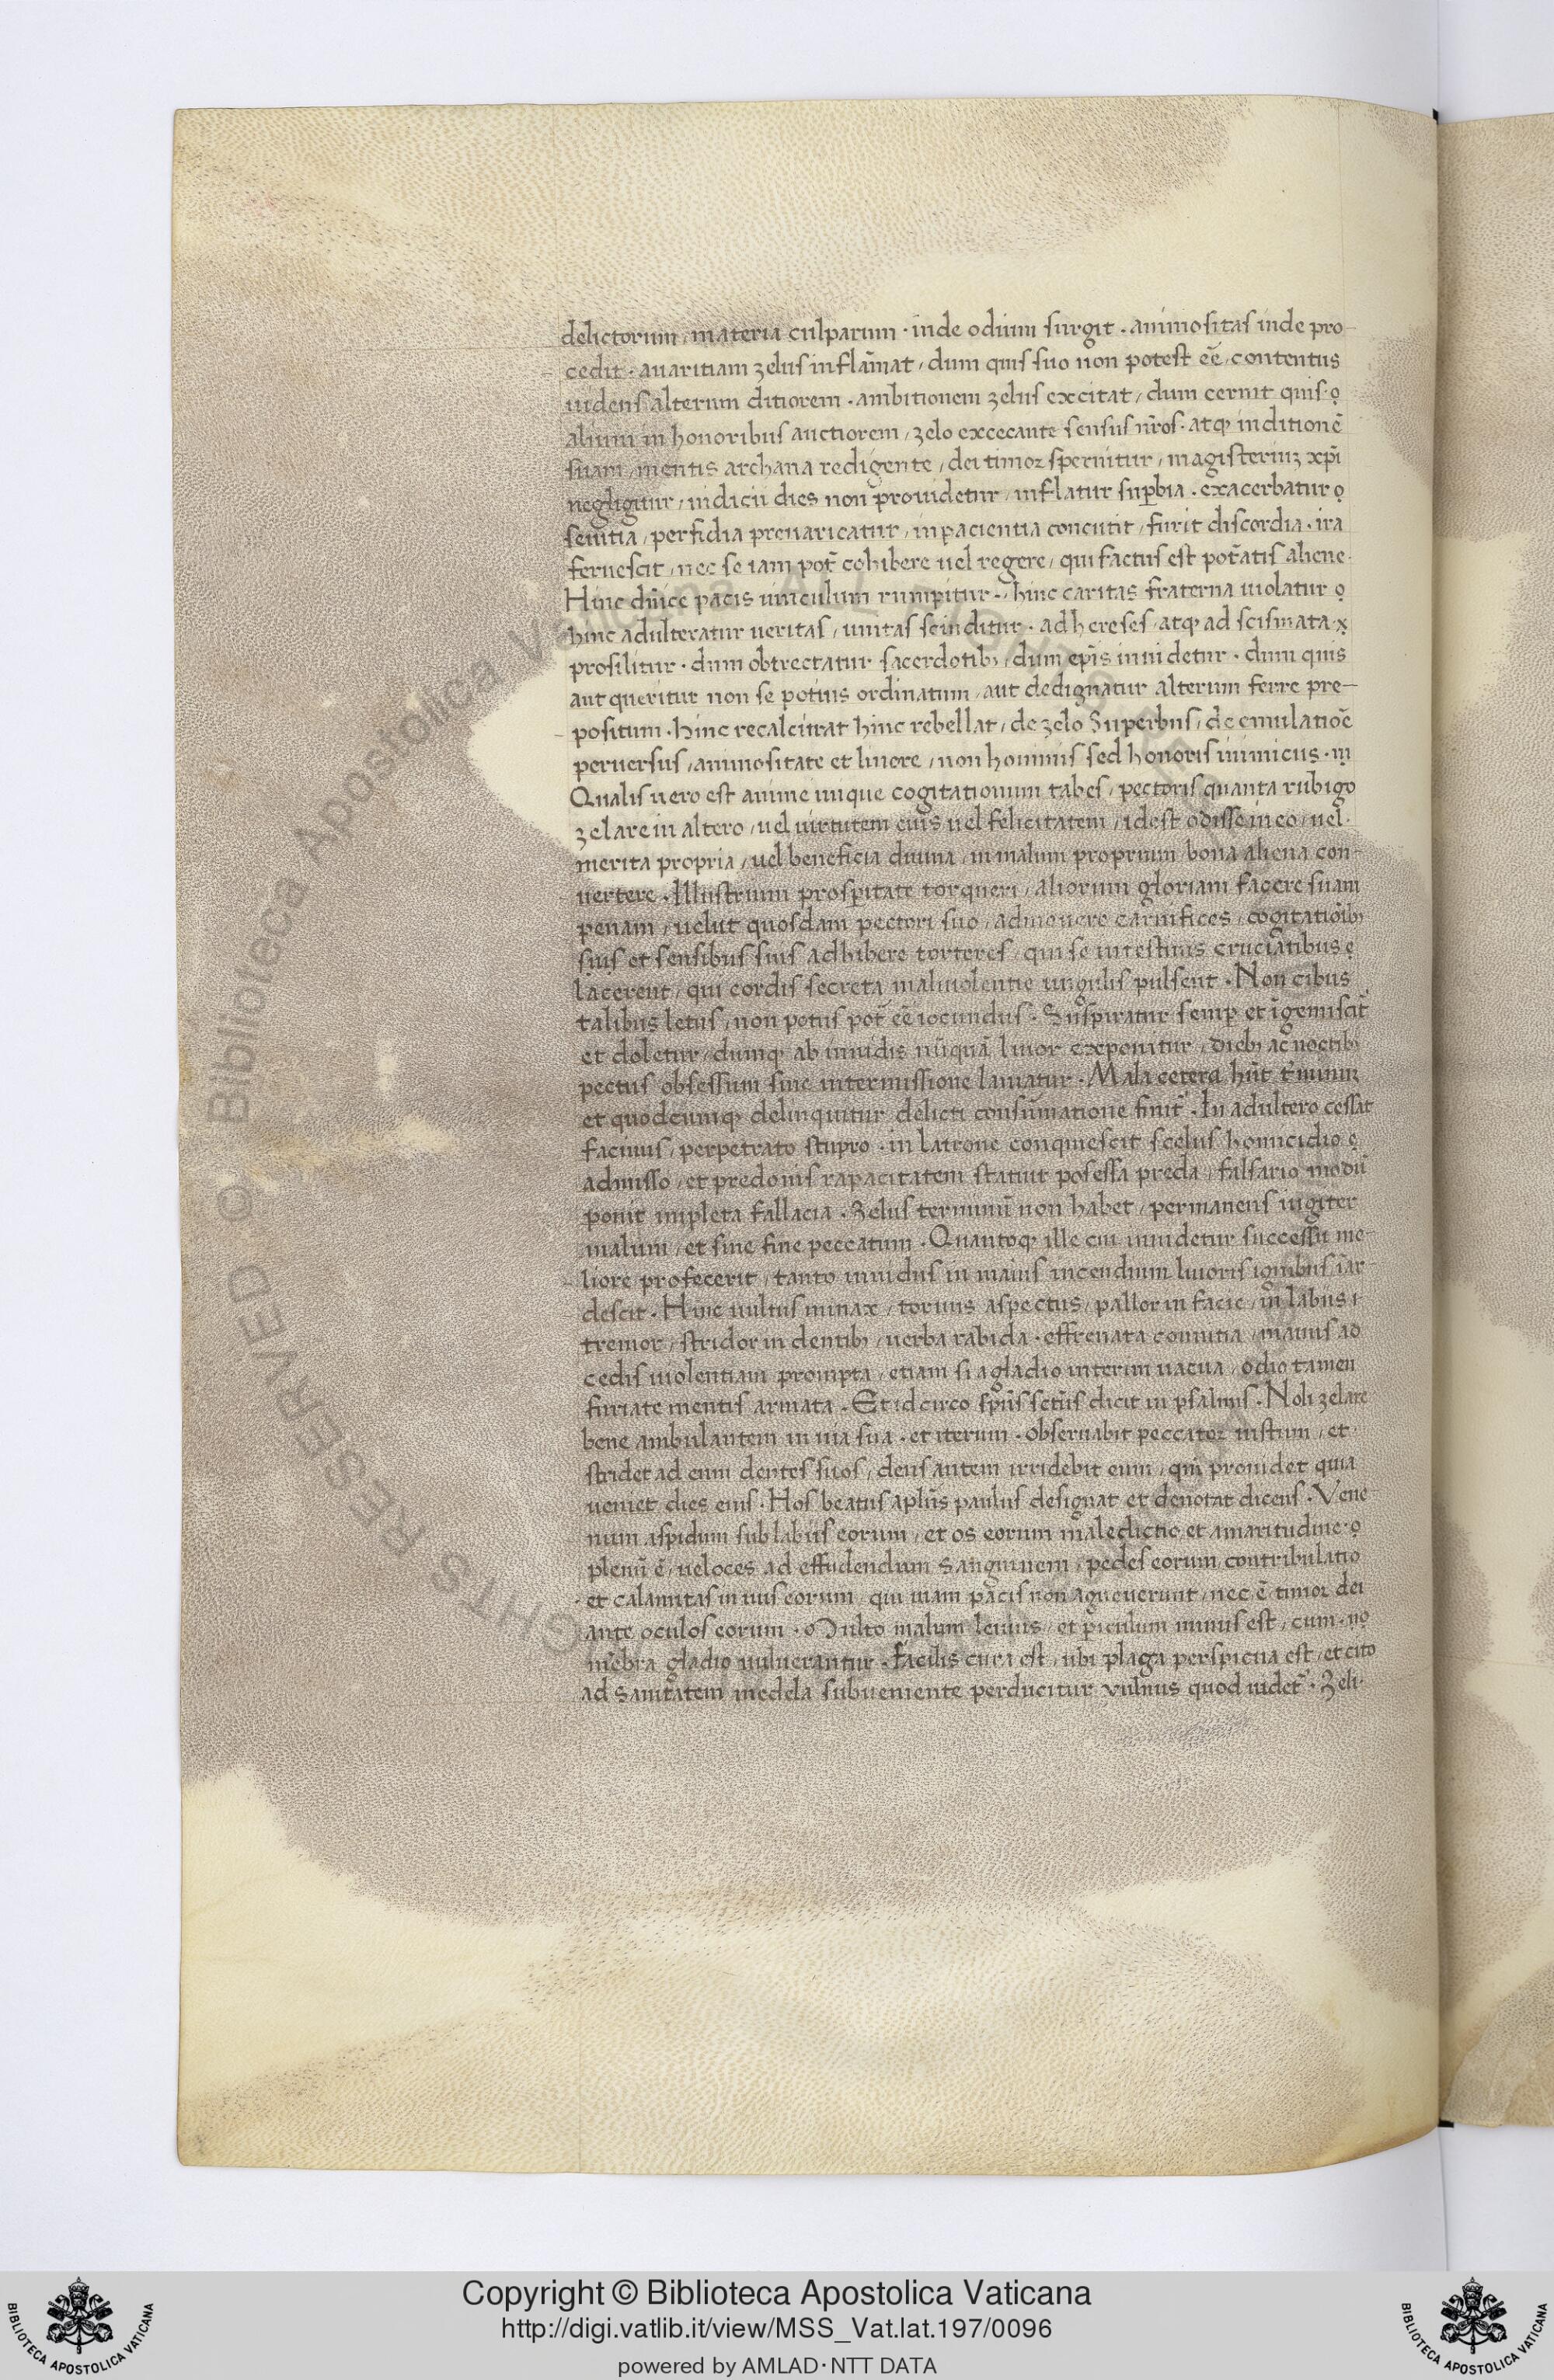 delictorum, materia culparum · inde odium surgit · animositas inde pro-
cedit · auaritiam zelus inflāmat, dum quis suo non potest eē, contentus
uidens alterum ditiorem · ambitionem zelus excitat, dum cernit quis · o
alium in honoribus auctiorem, zelo excecante sensus nr̄os · atq, in ditionē
suam, mentis archana redigente, dei timor spernitur, magisteriuz xp̄i
negligitur, iudicii dies non prouidetur, inflatur suꝑbia · exacerbatur o
seuitia, perfidia preuaricatur, inpacientia concutit, furit discordia · ira
feruescit, nec se iam pot̄ cohibere uel regere, qui factus est pot̄atis aliene ·
Hinc dn̄ice pacis uinculum rumpitur ·, hinc caritas fraterna uiolatur o
hinc adulteratur ueritas, unitas scinditur · ad hereses, atq, ad scismata x
prosilitur · dum obtrectatur sacerdotib;, dum ep̄is inuidetur · dum quis
aut queritur non se potius ordinatum, aut dedignatur alterum ferre pre-
positum · hinc recalcitrat hinc rebellat, de zelo Superbus, de emulatiōe
peruersus, animositate et liuore, non hominis sed honoris inimicus · m
Qualis uero est anime tinque cogitationum tabes, pectoris quanta rubigo
zelare in altero, uel uirtutem eius uel felicitatem, idest odisse in eo, uel ·
merita propria, uel beneficia diuina, in malum proprium bona aliena con-
uertere · Illustrium prosꝑitate torqueri, aliorum gloriam facere suam
penam, uelut quosdam pectori suo, admouere carnifices, cogitatiōib;
suis et sensibus suis adhibere tortores, qui se intestinis cruciatibus o
lacerent, qui cordis secreta maliuolentie ungulis pulsent · Non cibus
talibus letus, non potus pot̄ eē iocundus · Suspiratur semꝑ et īgemiscit̄
et doletur, dumq, ab inuidis nūquā liuor exponitur, dieb; ac noctib;
pectus obsessum sine intermissione laniatur · Mala cetera hn̄t t̄minuz
et quodcumq, delinquitur delicti consūmatione finit̄ · In adultero cessat
facinus, perpetrato stupro · in latrone conquiescit scelus homicidio o
admisso, et predonis rapacitatem statuit posessa preda, falsario modū
ponit impleta fallacia · Zelus terminū non habet, permanens iugiter
malum, et sine fine peccatum · Quantoq, ille cui inuidetur successu me-
liore profecerit, tanto inuidus in maius incendium liuoris ignibus iār-
descit · Hinc uultus minax, toruus aspectus, pallor in facie, in labiis ı
tremor, stridor in dentib;, uerba rabida · effrenata conuitia, manus ad
cedis uiolentiam prompta, etiam si a gladio interim uacua, odio tamen
furiate mentis armata · Et idcirco sp̄us sct̄us dicit in psalmis · Noli zelare
bene ambulantem in uia sua · et iterum · obseruabit peccator iustum, et ·
stridet ad eum dentes suos, deus autem irridebit eum, qm̄ prouidet quia
ueniet dies eius · Hos beatus apl̄us paulus designat et denotat dicens · Vene
num aspidum sub labiis eorum, et os eorum maledictiō et amaritudine · o
plenū ē, ueloces ad effudendum sanguinem, pedes eorum, contribulatio
et calamitas in uiis eorum, qui uiam pacis non agnouerunt, nec ē timor dei
ante oculos eorum · Multo malum leuius, et ꝑiculum minus est, cum · no
mēbra gladio uulnerantur · facilis cura est, ubi plaga perspicua est, et cito
ad Sanitatem medela subueniente perducitur uulnus quod uidet̄ · Zeli ·
Copyright © Biblioteca Apostolica Vaticana
http://digi.vatlib.it/view/MSS_Vat.lat.197/0096
powered by AMLAD·NTT DATA
BIBLIOTECA APOSTOLICA VATICANA
BIBLIOTECA APOSTOLICA VATICANA